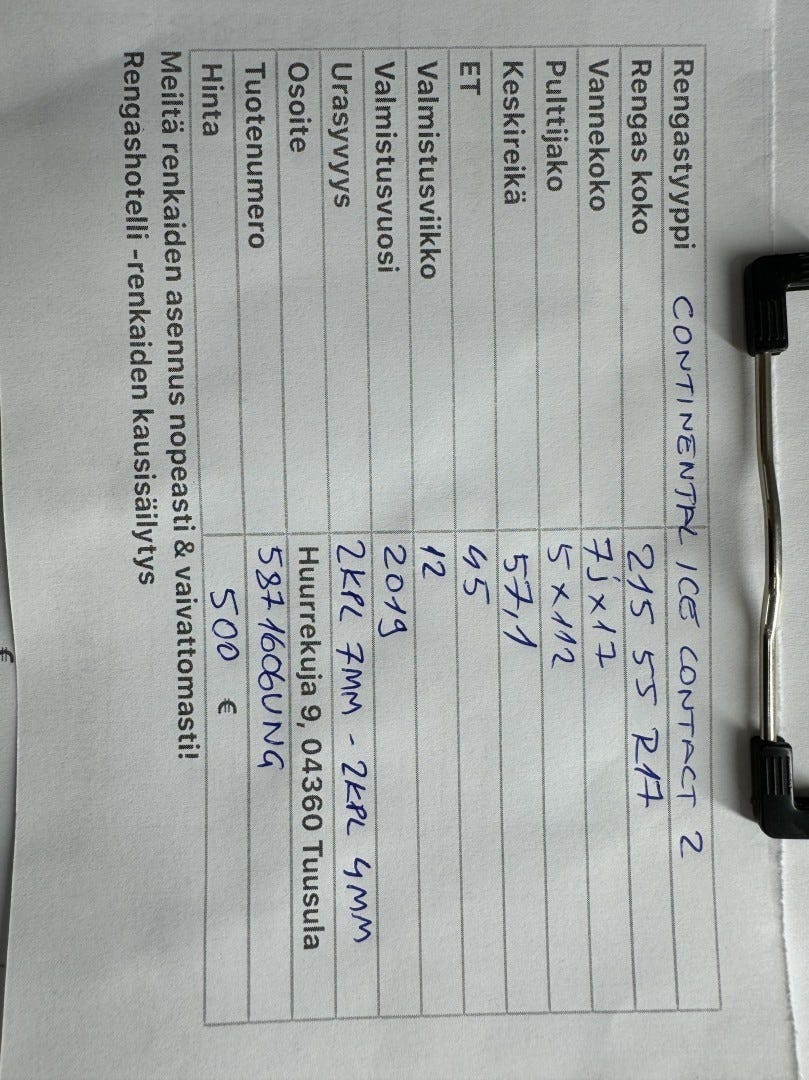 Rengastyyppi CONTINENTAL ICE CONTACT 2
Rengas koko 215 55 R17
Vannekoko 7j x 17
Pulttijako 5 x 112
Keskireikä 57,1
ET 45
Valmistusviikko 12
Valmistusvuosi 2019
Urasyvyys 2KPL 7MM - 2KPL 4MM
Osoite Huurrekuja 9, 04360 Tuusula
Tuotenumero 5871606UNG
Hinta 500 €
Meiltä renkaiden asennus nopeasti & vaivattomasti!
Rengashotelli -renkaiden kausisäilytys
€